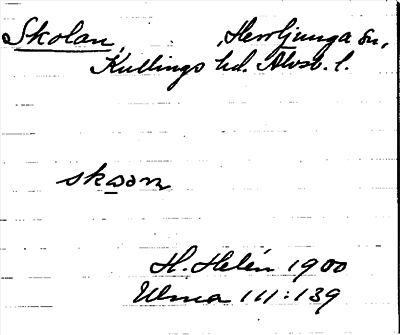 Skolan, Herrljunga sn,
Kullings hd. Älvsb. l.
skɷɷn
H. Helén 1900
Ulma 111:139